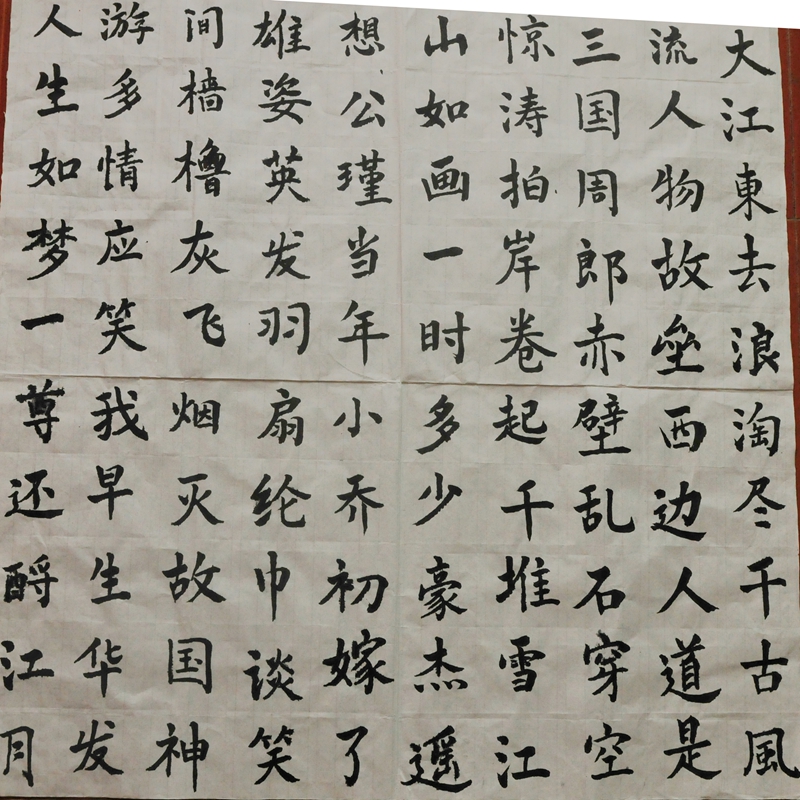 大江東去浪淘尽千古風
流人物故垒西边人道是
三国周郎赤壁乱石穿空
惊涛拍岸卷起千堆雪江
山如画一时多少豪杰遥
想公瑾当年小乔初嫁了
雄姿英发羽扇纶巾谈笑
间樯橹灰飞烟灭故国神
游多情应笑我早生华发
人生如梦一尊还酹江月